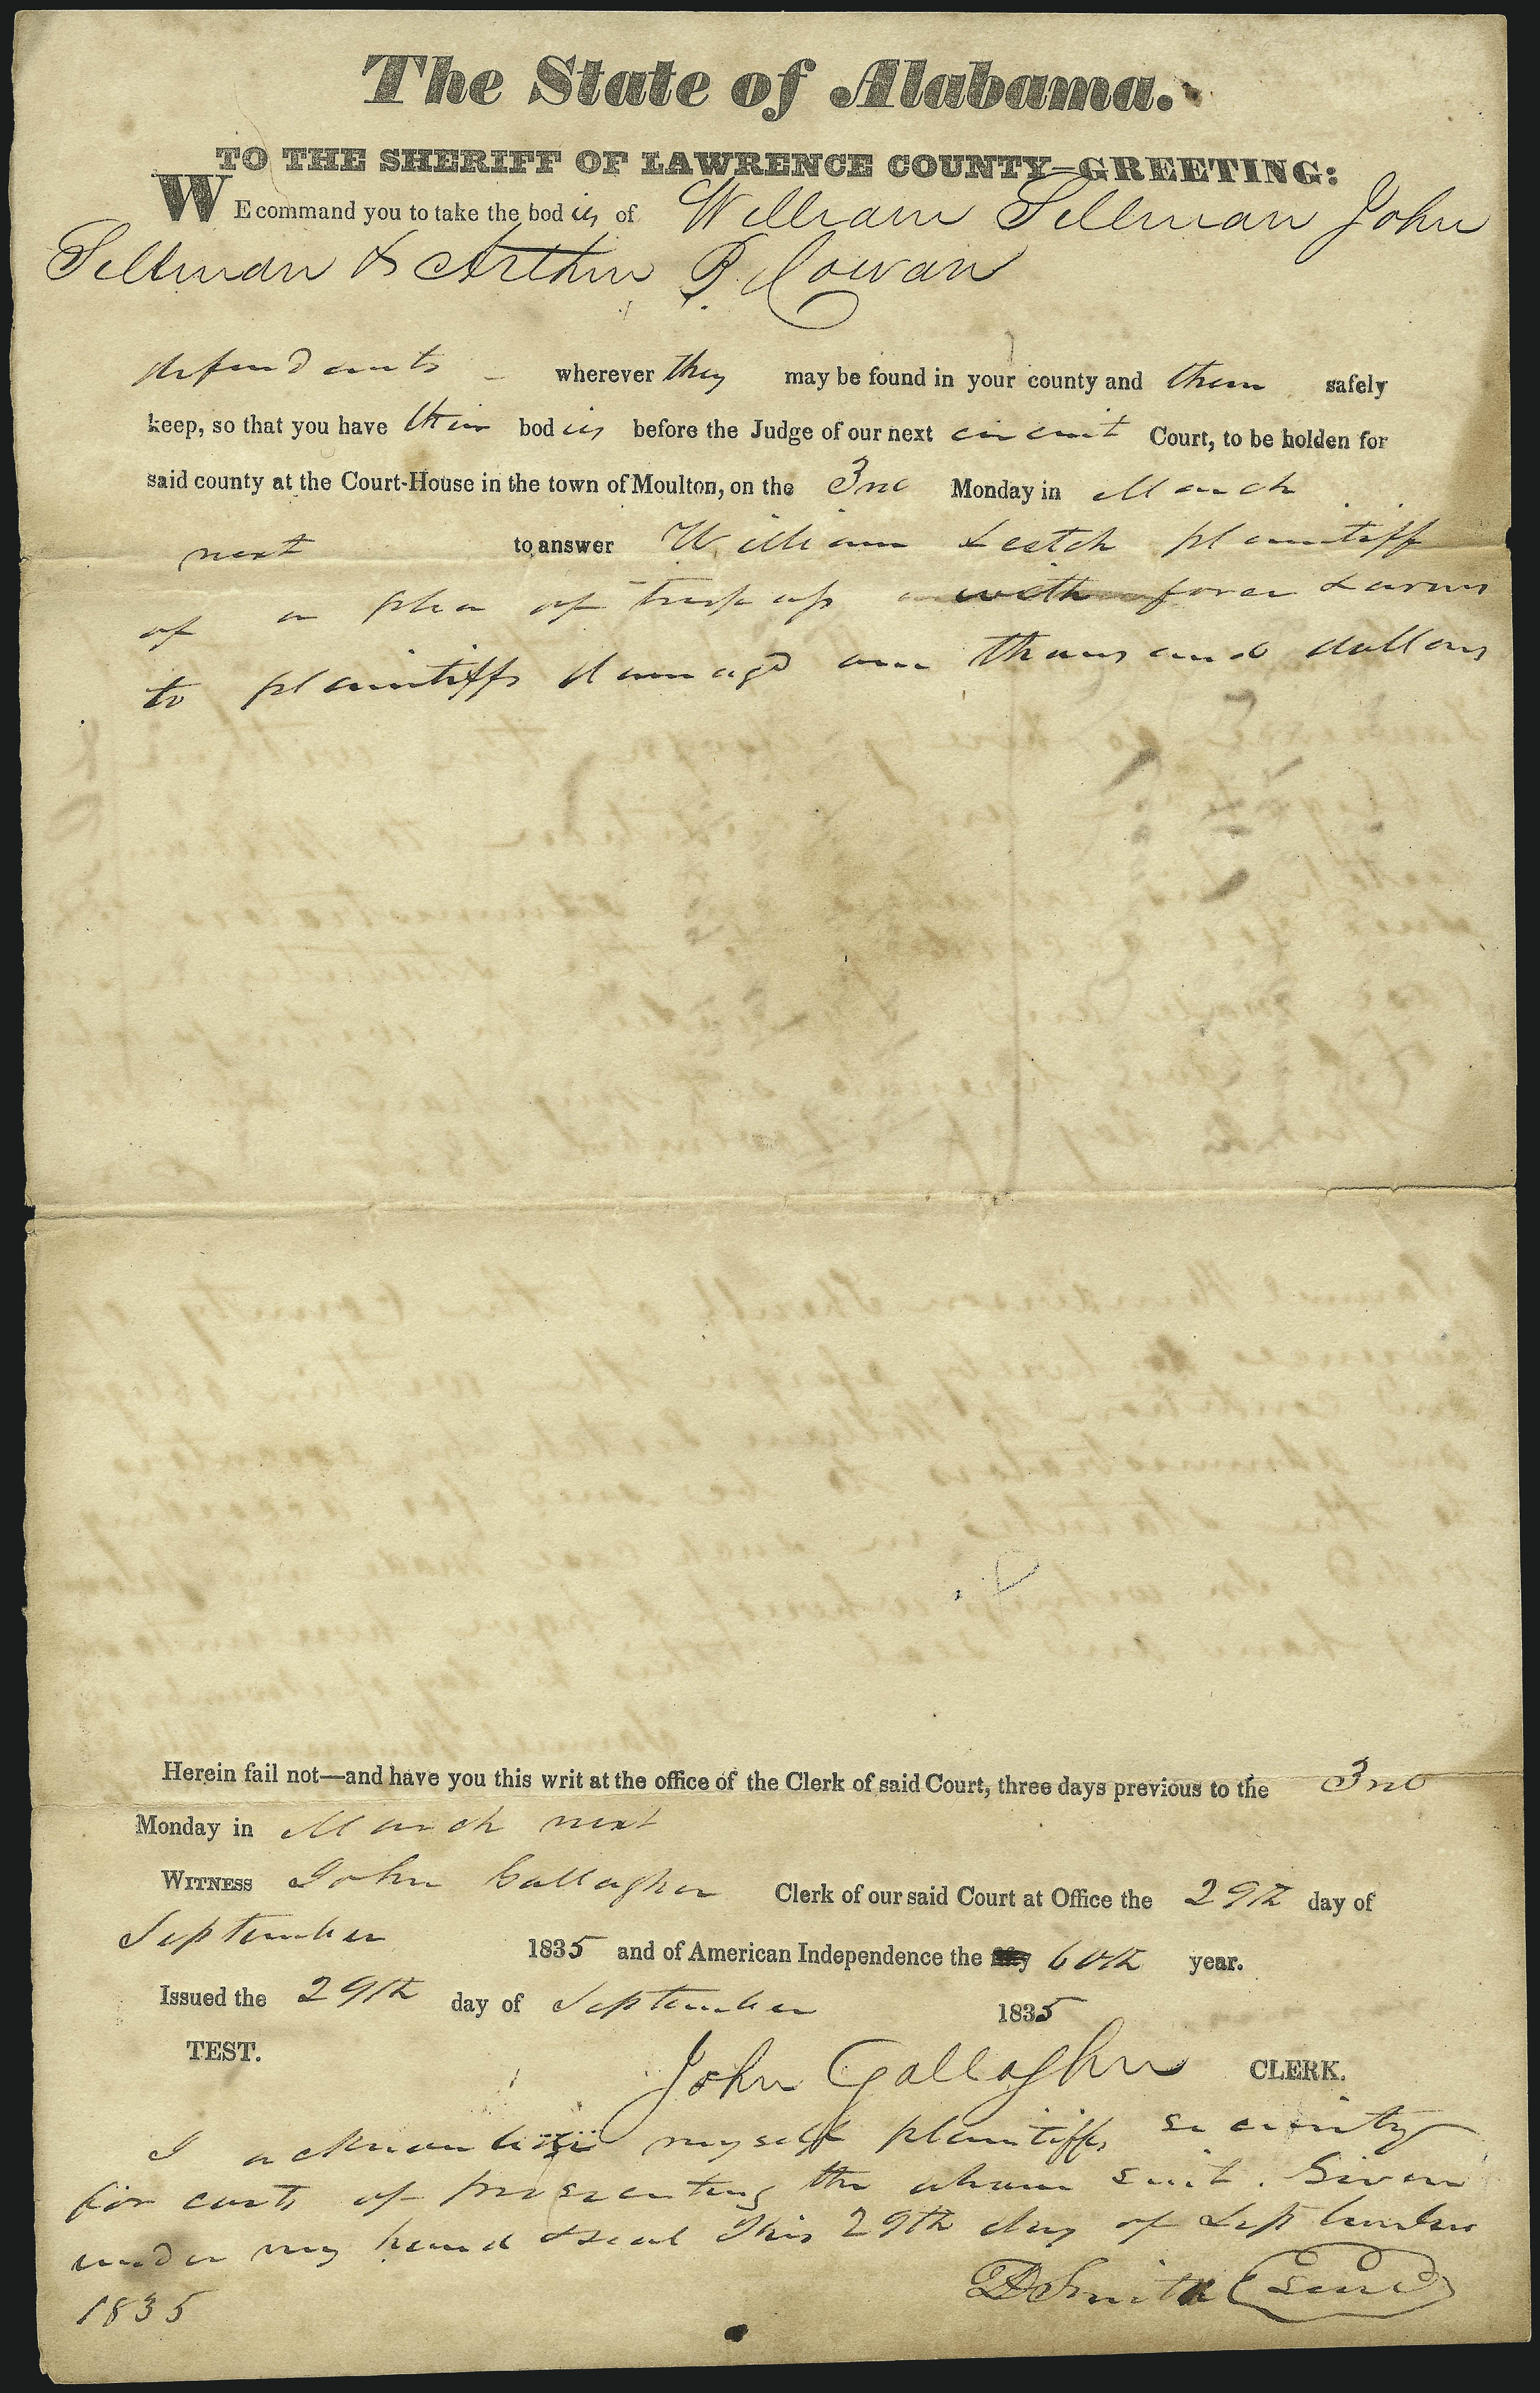 The State of Alabama.
TO THE SHERIFF OF LAWRENCE COUNTY—GREETING:
WE command you to take the bodies of William Sellman John
Sellman & Arthur P. Cowan
defendants wherever they may be found in your county and them safely
keep, so that you have their bodies before the Judge of our next circuit Court, to be holden for
said county at the Court-House in the town of Moulton, on the 3rd Monday in March
next to answer William Leetch plaintiff
of a plea of trespass with force & arms
to plaintiffs damage one thousand dollars
Herein fail not—and have you this writ at the office of the Clerk of said Court, three days previous to the 3rd
Monday in March next
WITNESS John Gallagher Clerk of our said Court at Office the 29th day of
September 1835 and of American Independence the 60th year.
Issued the 29th day of September 1835
TEST. John Gallagher CLERK.
I acknowledge myself plaintiffs security
for costs of prosecuting the above suit. Given
under my hand & seal this 29th day of September
1835
D Smith (Seal)